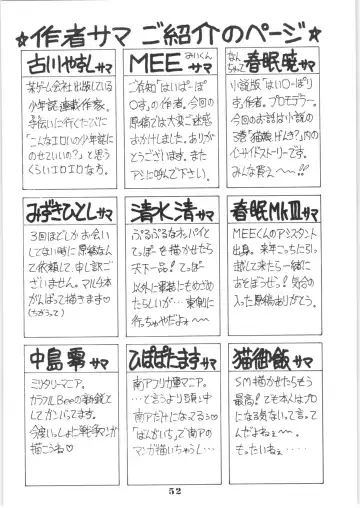 ☆作者サマ ご紹介のページ☆
古川やすしサマ
某ゲーム会社出版している
少年誌連載作家。
手伝いに行くたびに
「こんなエロいの少年誌に
のせていいの?」と思う
くらいエロエロな方。
MEEサマ
みいくん
ご存知「はいぱーぽ
○す」の作者。今回の
原稿では大変ご迷惑
おかけしました。ありが
とうございます。また
アシに呼んで下さい。
なんちゃって
春眠暁サマ
小説版「はい○-ぽり
す」作者。プロモデラー。
今回のお話は小説の
3巻「猫娘、げんき?」内の
インサイドストーリーです。
みんな買え〜!!
みずきひとしサマ
3回ほどしかお会い
してない時に原稿なん
て依頼して、申し訳ご
ざいません。マルチ本
がんばって描きます♡
(ちがうって)
清水清サマ
ぷるぷるなおっパイと
てっぽーを描かせたら
天下一品!てっぽー
以外に東鳩にもめざめ
たらしいが…東側に
行っちゃやだよぉ〜〜
春眠MkⅢサマ
MEEくんのアシスタント
出身。来年こっちに引っ
越して来たら一緒に
あそぼうぜっ!気合の
入った原稿ありがとう。
中島零サマ
ミリタリーマニア。
カラフルBeeの新鋭と
してガンバってます。
今度いっしょに戦争マンガ
描こうね♡
ひぱぱたますサマ
南アフリカ軍マニア。
…と言うより頭ン中
南アだけになってるう♡
「ばんがいち」で南アの
マンガ描いちゃうし…
猫御飯サマ
SM描かせたらもう
最高!でも本人はプロ
になる気ないって言って
んだよねぇ〜〜。
もったいねぇ…
52